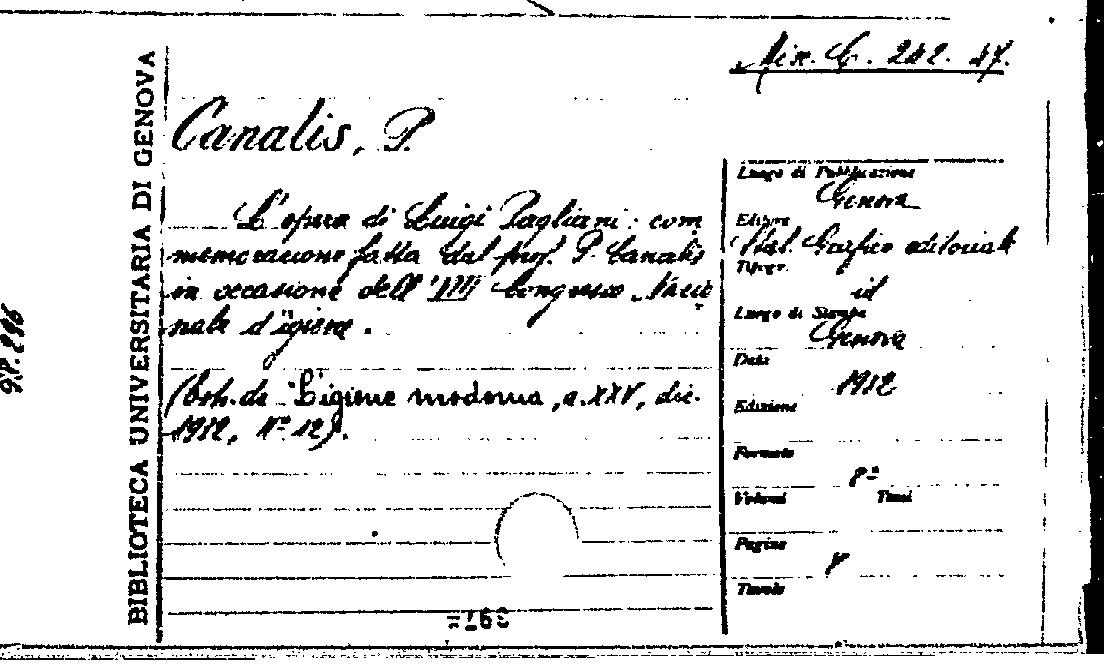 Mis. C. 242. 47.
BIBLIOTECA UNIVERSITARIA DI GENOVA
Canalis, P.
L'opera di Luigi Pagliani: com
memorazione fatta dal prof. P. Canalis
in occasione dell' VIII Congresso Nazio
nale d'igiene.
(Estr. da "L'igiene moderna, a. XXV, dic.
1932, N° 12).
Luogo di Pubblicazione
Genova
Editore
Stab. Grafico editoriale
Tipogr.
id
Luogo di Stampa
Genova
Data
1932
Edizione
Formato
8°
Volumi Tomi
Pagine
Tavole